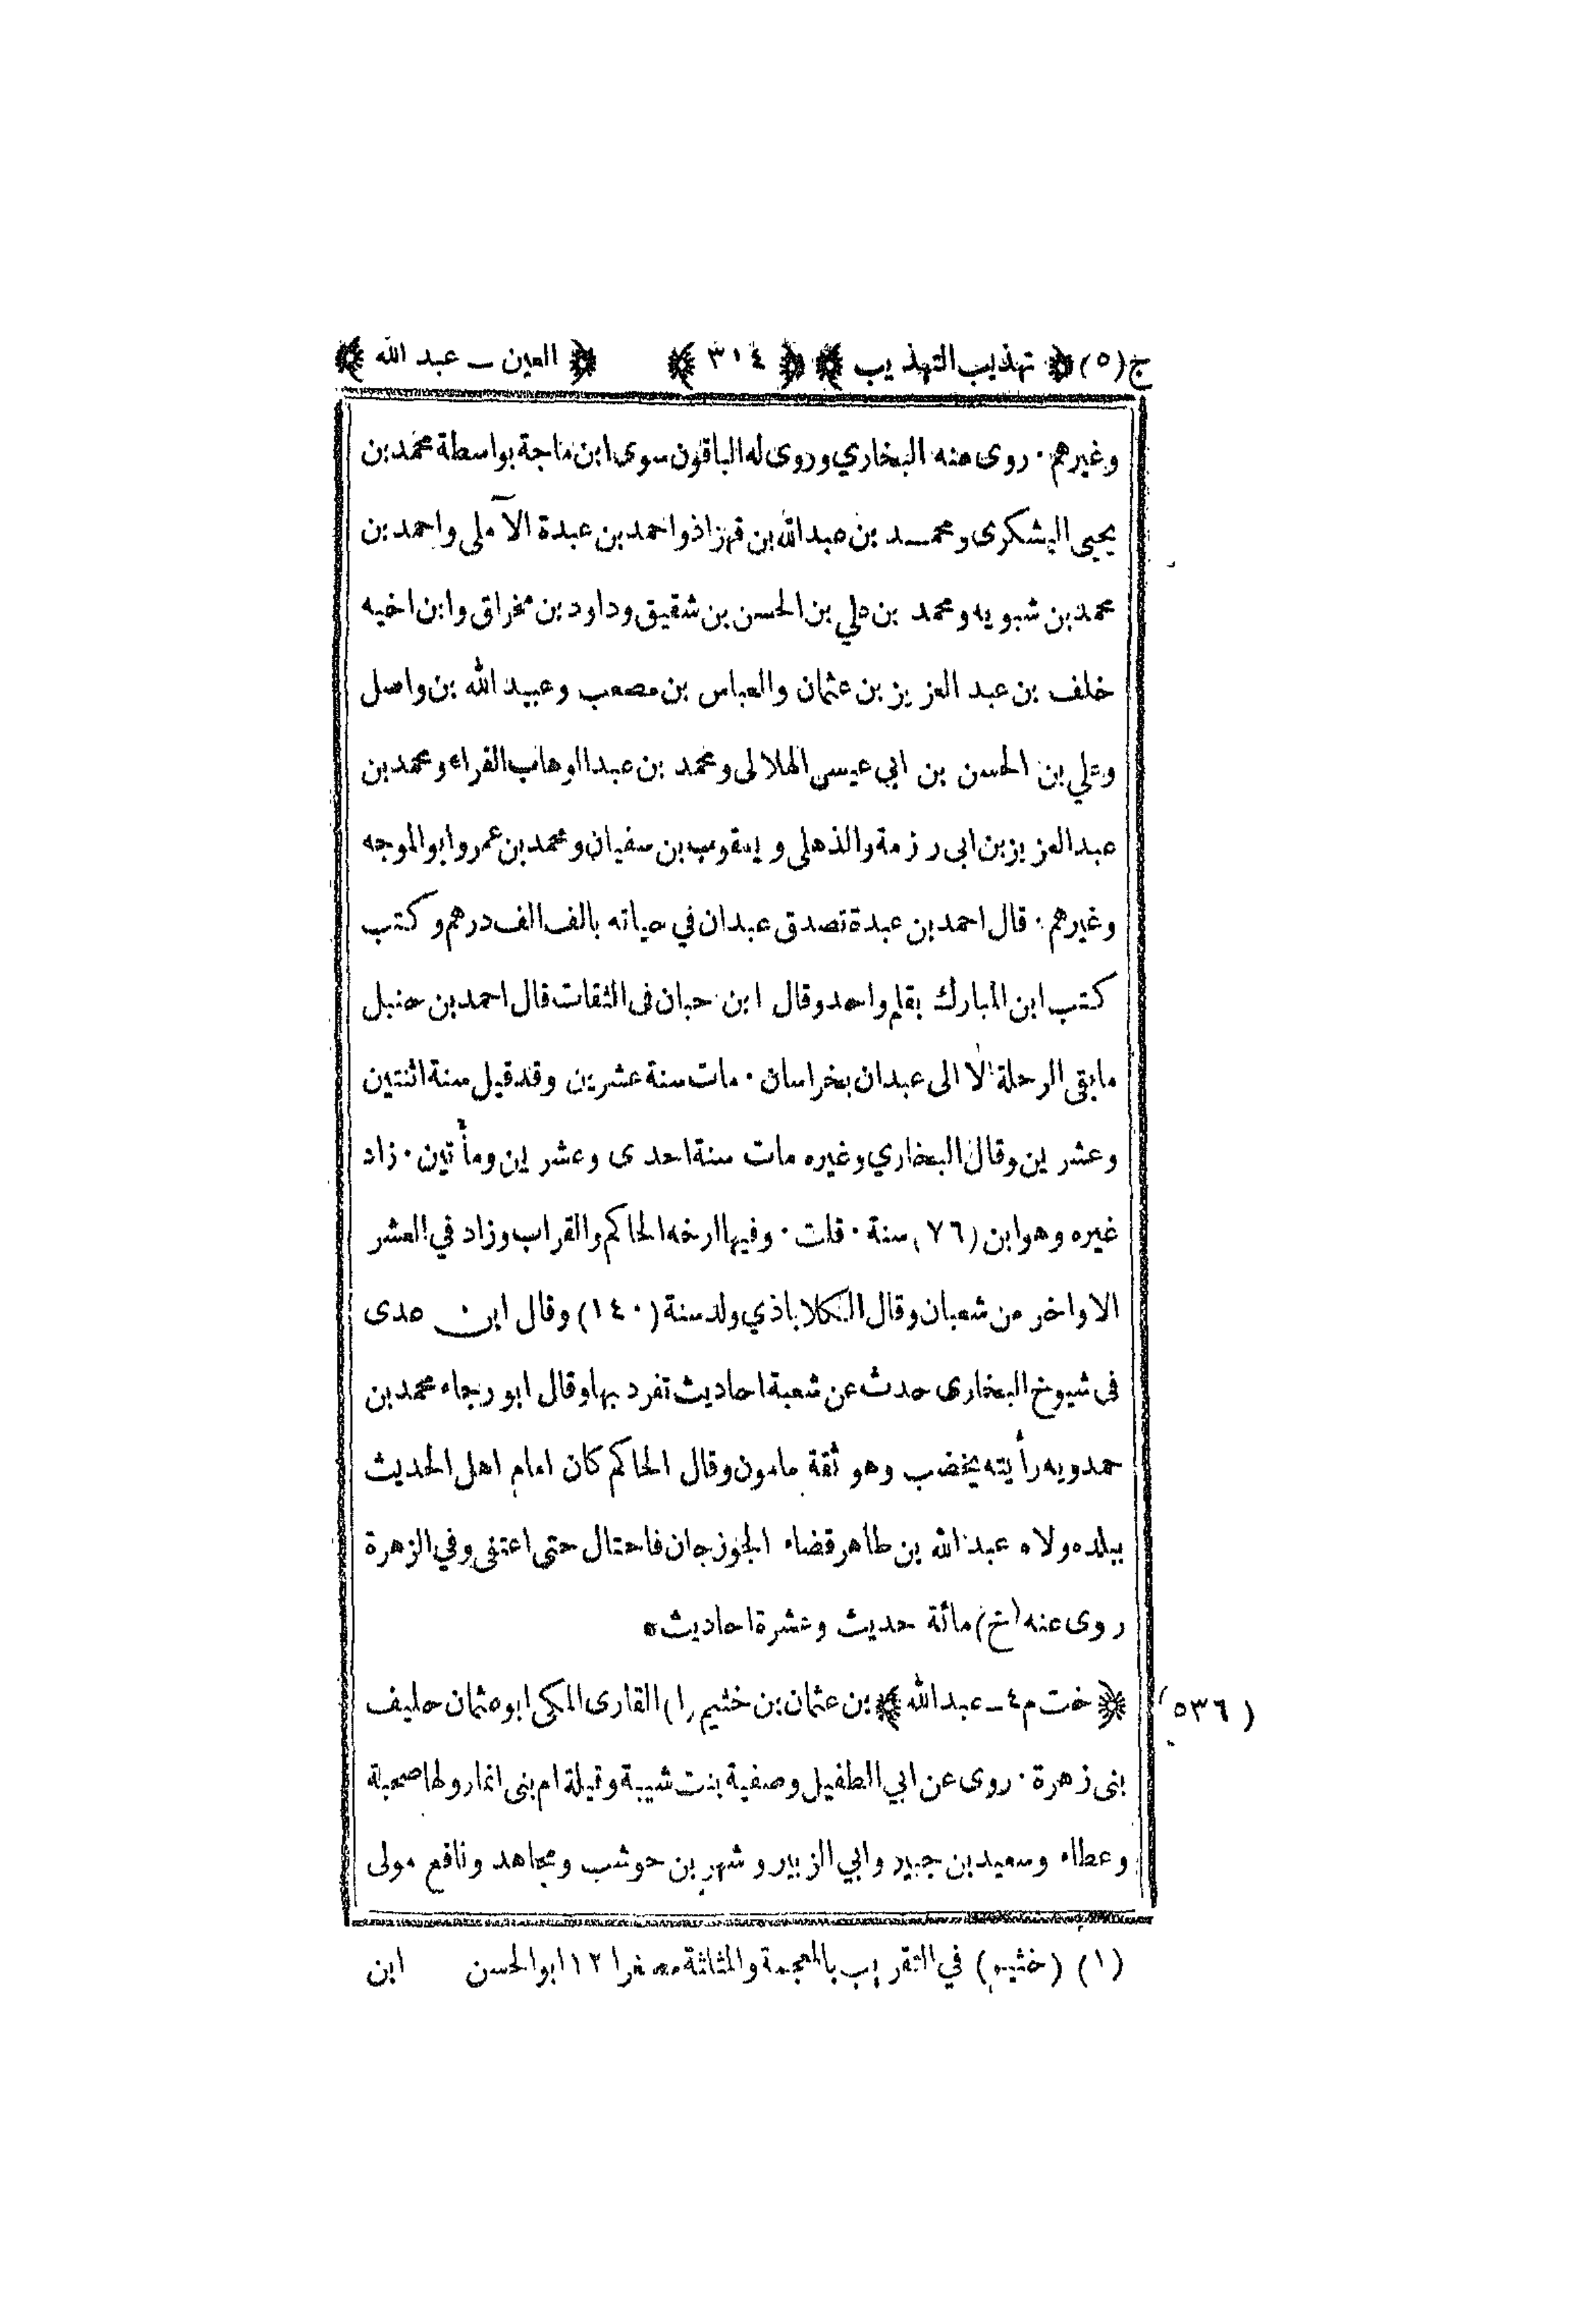 ج (٥) ﴿ تهذيب التهذيب ﴾ ﴿ ٣١٤ ﴾ ﴿ العين ــ عبد الله ﴾
وغيرهم · روى عنه البخاري وروى له الباقون سوى ابن ماجة بواسطة محمد بن
يحيى اليشكرى ومحمــد بن عبد الله بن قهزاذ واحمد بن عبدة الآملى واحمد بن
محمد بن شبويه ومحمد بن علي بن الحسن بن شقيق وداود بن مخراق وابن اخيه
خلف بن عبد العزيز بن عثمان والعباس بن مصعب وعبيد الله بن واصل
وعلي بن الحسن بن ابي عيسى الهلالى ومحمد بن عبد الوهاب الفراء ومحمد بن
عبد العزيز بن ابى رزمة والذهلى ويعقوب بن سفيان ومحمد بن عمرو ابو الموجه
وغيرهم · قال احمد بن عبدة تصدق عبدان في حياته بالف الف درهم وكتب
كتب ابن المبارك بقلم واحد وقال ابن حبان فى الثقات قال احمد بن حنبل
ما بقى الرحلة الا الى عبدان بخراسان · مات سنة عشرين وقد قيل سنة اثنتين
وعشرين وقال البخاري وغيره مات سنة احدى وعشرين ومأتين · زاد
غيره وهو ابن (٧٦) سنة · قلت · وفيها ارخه الحاكم والقراب وزاد في العشر
الاواخر من شعبان وقال الكلاباذي ولد سنة (١٤٠) وقال ابن عدى
فى شيوخ البخارى حدث عن شعبة احاديث تفرد بها وقال ابو رجاء محمد بن
حمدويه رأيته يخضب وهو ثقة مامون وقال الحاكم كان امام اهل الحديث
ببلده ولاه عبد الله بن طاهر قضاء الجوزجان فاحتال حتى اعتفى وفي الزهرة
روى عنه (خ) مائة حديث وعشرة احاديث ٥
(٥٣٦) ﴿ خت م ٤ ــ عبد الله ﴾ بن عثمان بن خثيم (١) القارى المكى ابو عثمان حليف
بنى زهرة · روى عن ابي الطفيل وصفية بنت شيبة وقيلة ام بنى انمار ولها صحبة
وعطاء وسعيد بن جبير وابي الزبير وشهر بن حوشب ومجاهد ونافع مولى
(١) (خثيم) في التقريب بالمعجمة والمثلثة مصغرا ١٢ ابو الحسن ابن